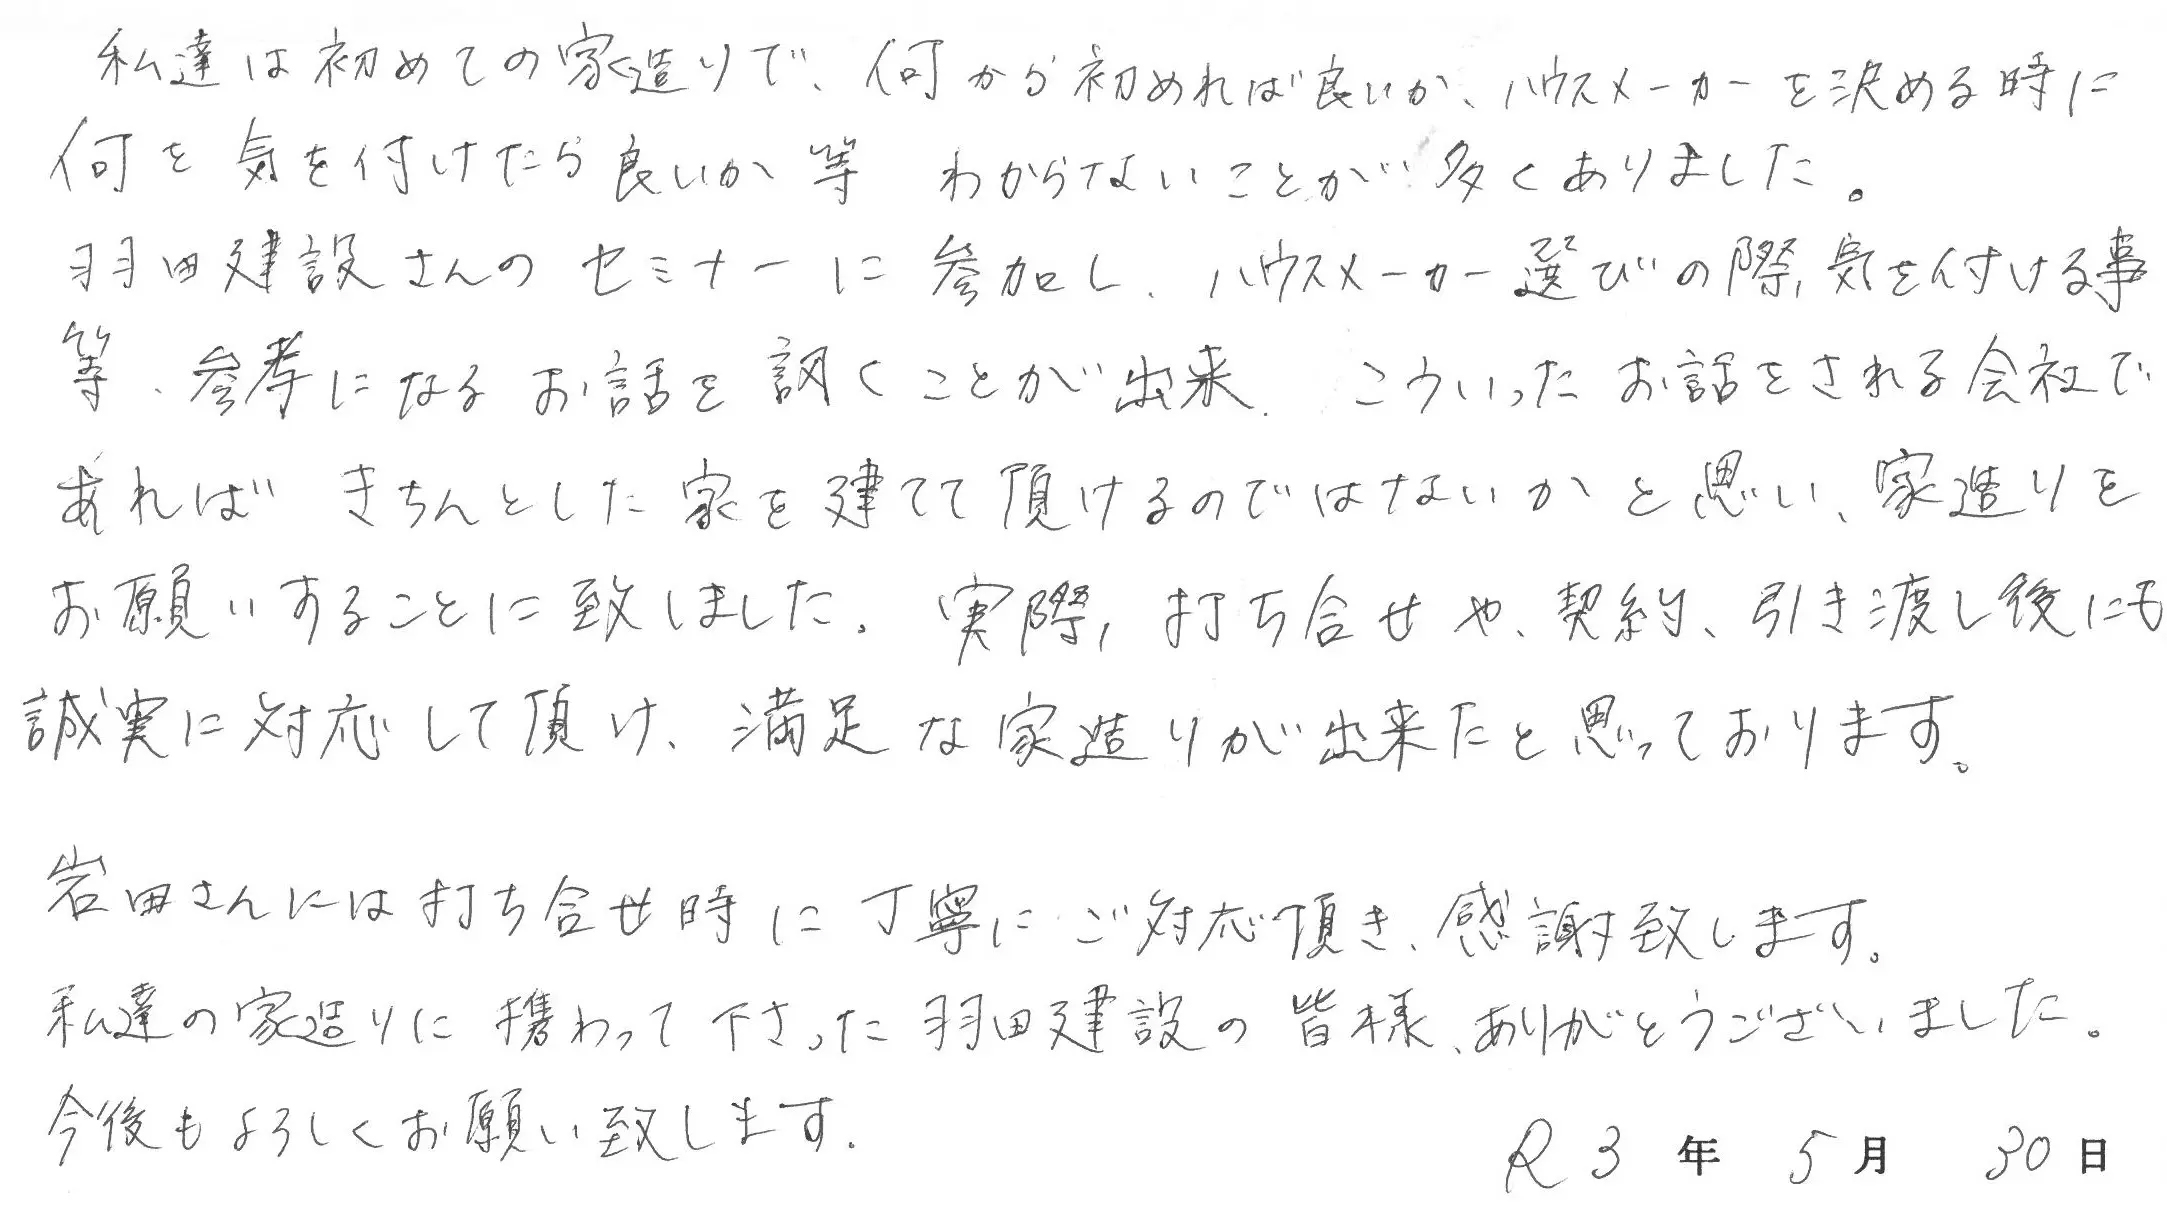 私達は初めての家造りで、何から初めれば良いか、ハウスメーカーを決める時に
何を気を付けたら良いか等 わからないことが多くありました。
羽田建設さんのセミナーに参加し、ハウスメーカー選びの際、気を付ける事
等、参考になるお話を訊くことが出来、こういったお話をされる会社で
あれば きちんとした家を建てて頂けるのではないかと思い、家造りを
お願いすることに致しました。実際、打ち合せや、契約、引き渡し後にも
誠実に対応して頂け、満足な家造りが出来たと思っております。
岩田さんには打ち合せ時に丁寧にご対応頂き、感謝致します。
私達の家造りに携わって下さった羽田建設の皆様、ありがとうございました。
今後もよろしくお願い致します.
R3年 5月 30日